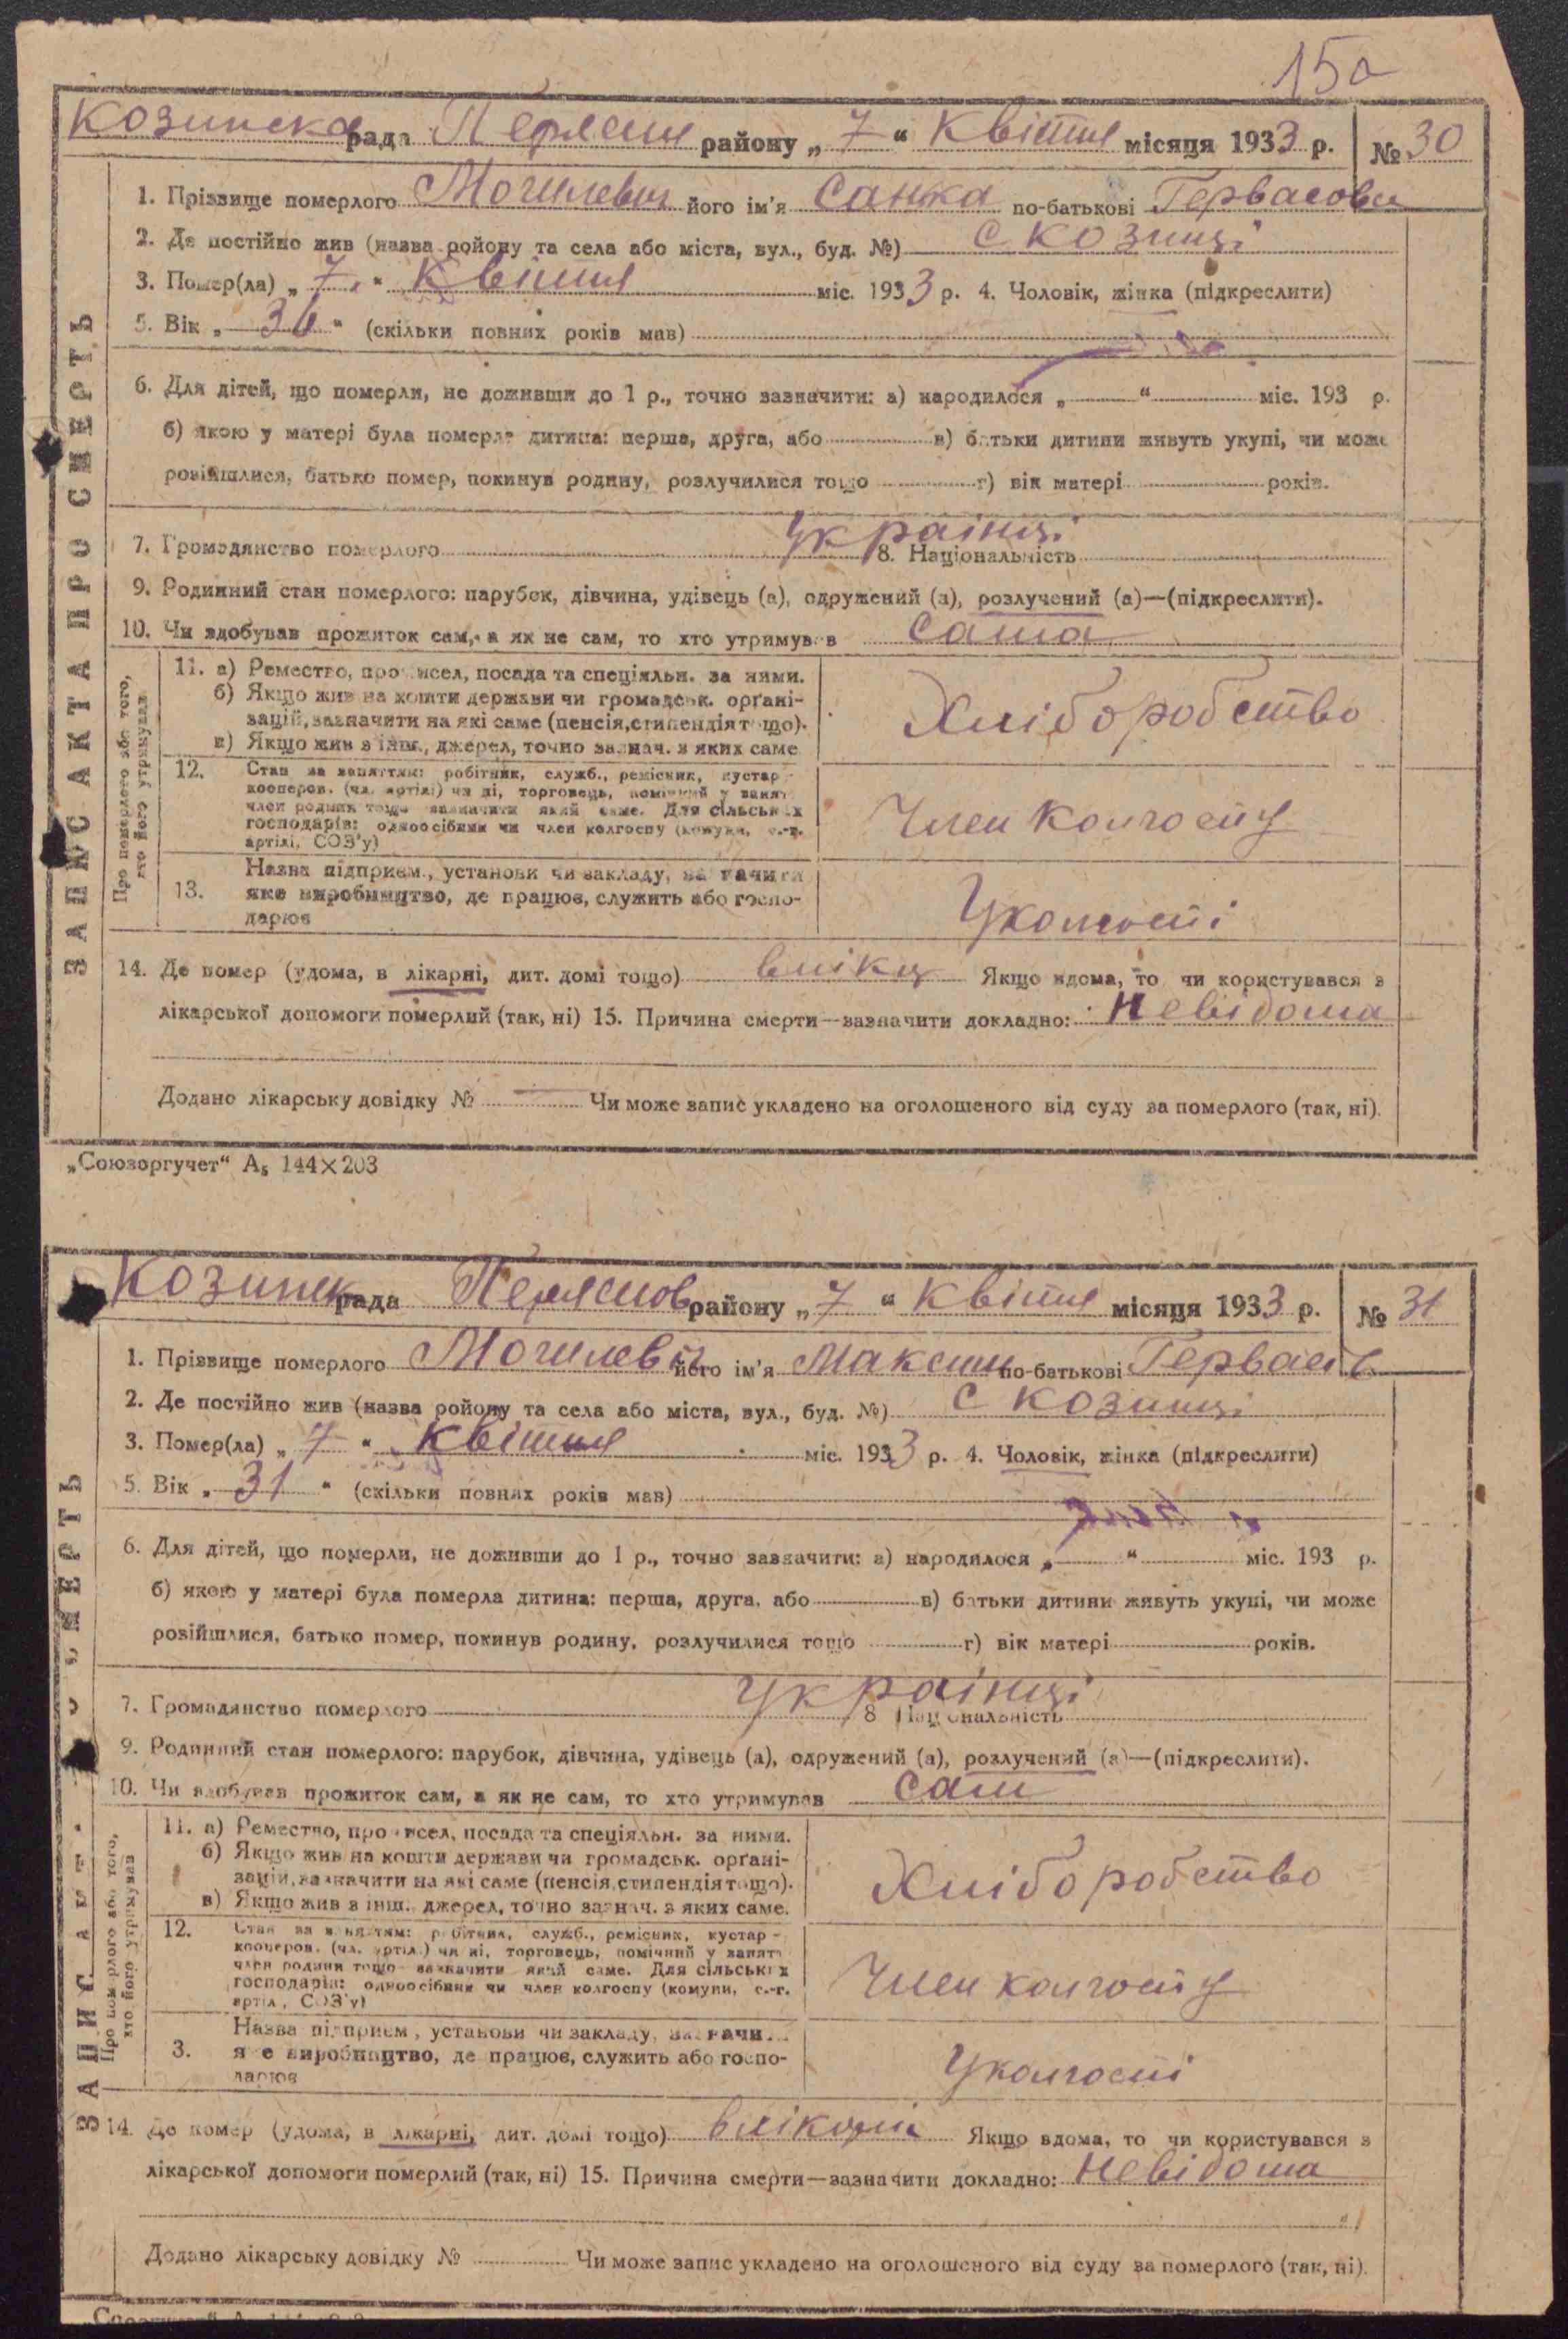 15а
Козинска рада Переясл району „ 7 “ Квітня місяця 1933 р. № 30
1. Прізвище померлого Могилевич його ім'я Санка по-батькові Гервасовн
2. Де постійно жив (назва ройону та села або міста, вул., буд. №) с козинці
3. Помер(ла) „ 7 “ Квітня міс. 1933 р. 4. Чоловік, жінка (підкреслити)
5. Вік „ 36 “ (скільки повних років мав)
6. Для дітей, що померли, не доживши до 1 р., точно зазначити: а) народилося „ “ міс. 193 р.
б) якою у матері була померла дитина: перша, друга, або в) батьки дитини живуть укупі, чи може
розійшлися, батько помер, покинув родину, розлучилися тощо г) вік матері років.
7. Громадянство померлого Українці 8. Національність
9. Родинний стан померлого: парубок, дівчина, удівець (а), одружений (а), розлучений (а)—(підкреслити).
10. Чи здобував прожиток сам, а як не сам, то хто утримував сама
ЗАПИС АКТА ПРО СМЕРТЬ
Про померлого або того,
хто його утримував
11. а) Ремество, промисел, посада та спеціяльн. за ними.
б) Якщо жив на кошти держави чи громадськ. орґані-
зацій, зазначити на які саме (пенсія, стипендія тощо).
в) Якщо жив з інш., джерел, точно зазнач. з яких саме
Хліборобство
12. Стан за заняттям: робітник, служб., ремісник, кустар -
кооперов. (чл. артілі) чи ні, торговець, помічний у занят.
член родини тощо зазначити який саме. Для сільських
господарів: одноосібник чи член колгоспу (комуни, с.-г.
артілі, СОЗ'у)
Член колгоспу
13. Назва підприєм., установи чи закладу, зазначити
яке виробництво, де працює, служить або госпо-
дарює
Уколгоспі
14. Де помер (удома, в лікарні, дит. домі тощо) вліка Якщо вдома, то чи користувався з
лікарської допомоги померлий (так, ні) 15. Причина смерти—зазначити докладно: Невідома
Додано лікарську довідку № Чи може запис укладено на оголошеного від суду за померлого (так, ні).
„Союзоргучет“ А₅ 144×203
Козинск рада Переяслов району „ 7 “ Квітня місяця 1933 р. № 31
1. Прізвище померлого Могилевич його ім'я Максим по-батькові Гервасів
2. Де постійно жив (назва ройону та села або міста, вул., буд. №) с козинці
3. Помер(ла) „ 7 “ Квітня міс. 1933 р. 4. Чоловік, жінка (підкреслити)
5. Вік „ 31 “ (скільки повнах років мав)
6. Для дітей, що померли, не доживши до 1 р., точно зазначити: а) народилося „ “ міс. 193 р.
б) якою у матері була померла дитина: перша, друга, або в) батьки дитини живуть укупі, чи може
розійшлися, батько помер, покинув родину, розлучилися тощо г) вік матері років.
7. Громадянство померлого Українці 8 Національність
9. Родинний стан померлого: парубок, дівчина, удівець (а), одружений (а), розлучений (а)—(підкреслити).
10. Чи здобував прожиток сам, а як не сам, то хто утримував сам
ЗАПИС АКТА ПРО СМЕРТЬ
Про померлого або того,
хто його утримував
11. а) Ремество, промисел, посада та спеціяльн. за ними.
б) Якщо жив на кошти держави чи громадськ. орґані-
зацій, зазначити на які саме (пенсія, стипендія тощо).
в) Якщо жив з інш. джерел, точно зазнач. з яких саме.
Хліборобство
12. Стан за заняттям: робітник, служб., ремісник, кустар -
кооперов. (чл. артіл.) чи ні, торговець, помічний у занят.
член родини тощо зазначити який саме. Для сільських
господарів: одноосібник чи член колгоспу (комуни, с.-г.
артіл., СОЗ'у)
Член колгоспу
3. Назва підприєм, установи чи закладу, зазначи
яке виробництво, де працює, служить або госпо-
дарює
Уколгоспі
14. Де помер (удома, в лікарні, дит. домі тощо) влікарні Якщо вдома, то чи користувався з
лікарської допомоги померлий (так, ні) 15. Причина смерти—зазначити докладно: Невідома
Додано лікарську довідку № Чи може запис укладено на оголошеного від суду за померлого (так, ні).